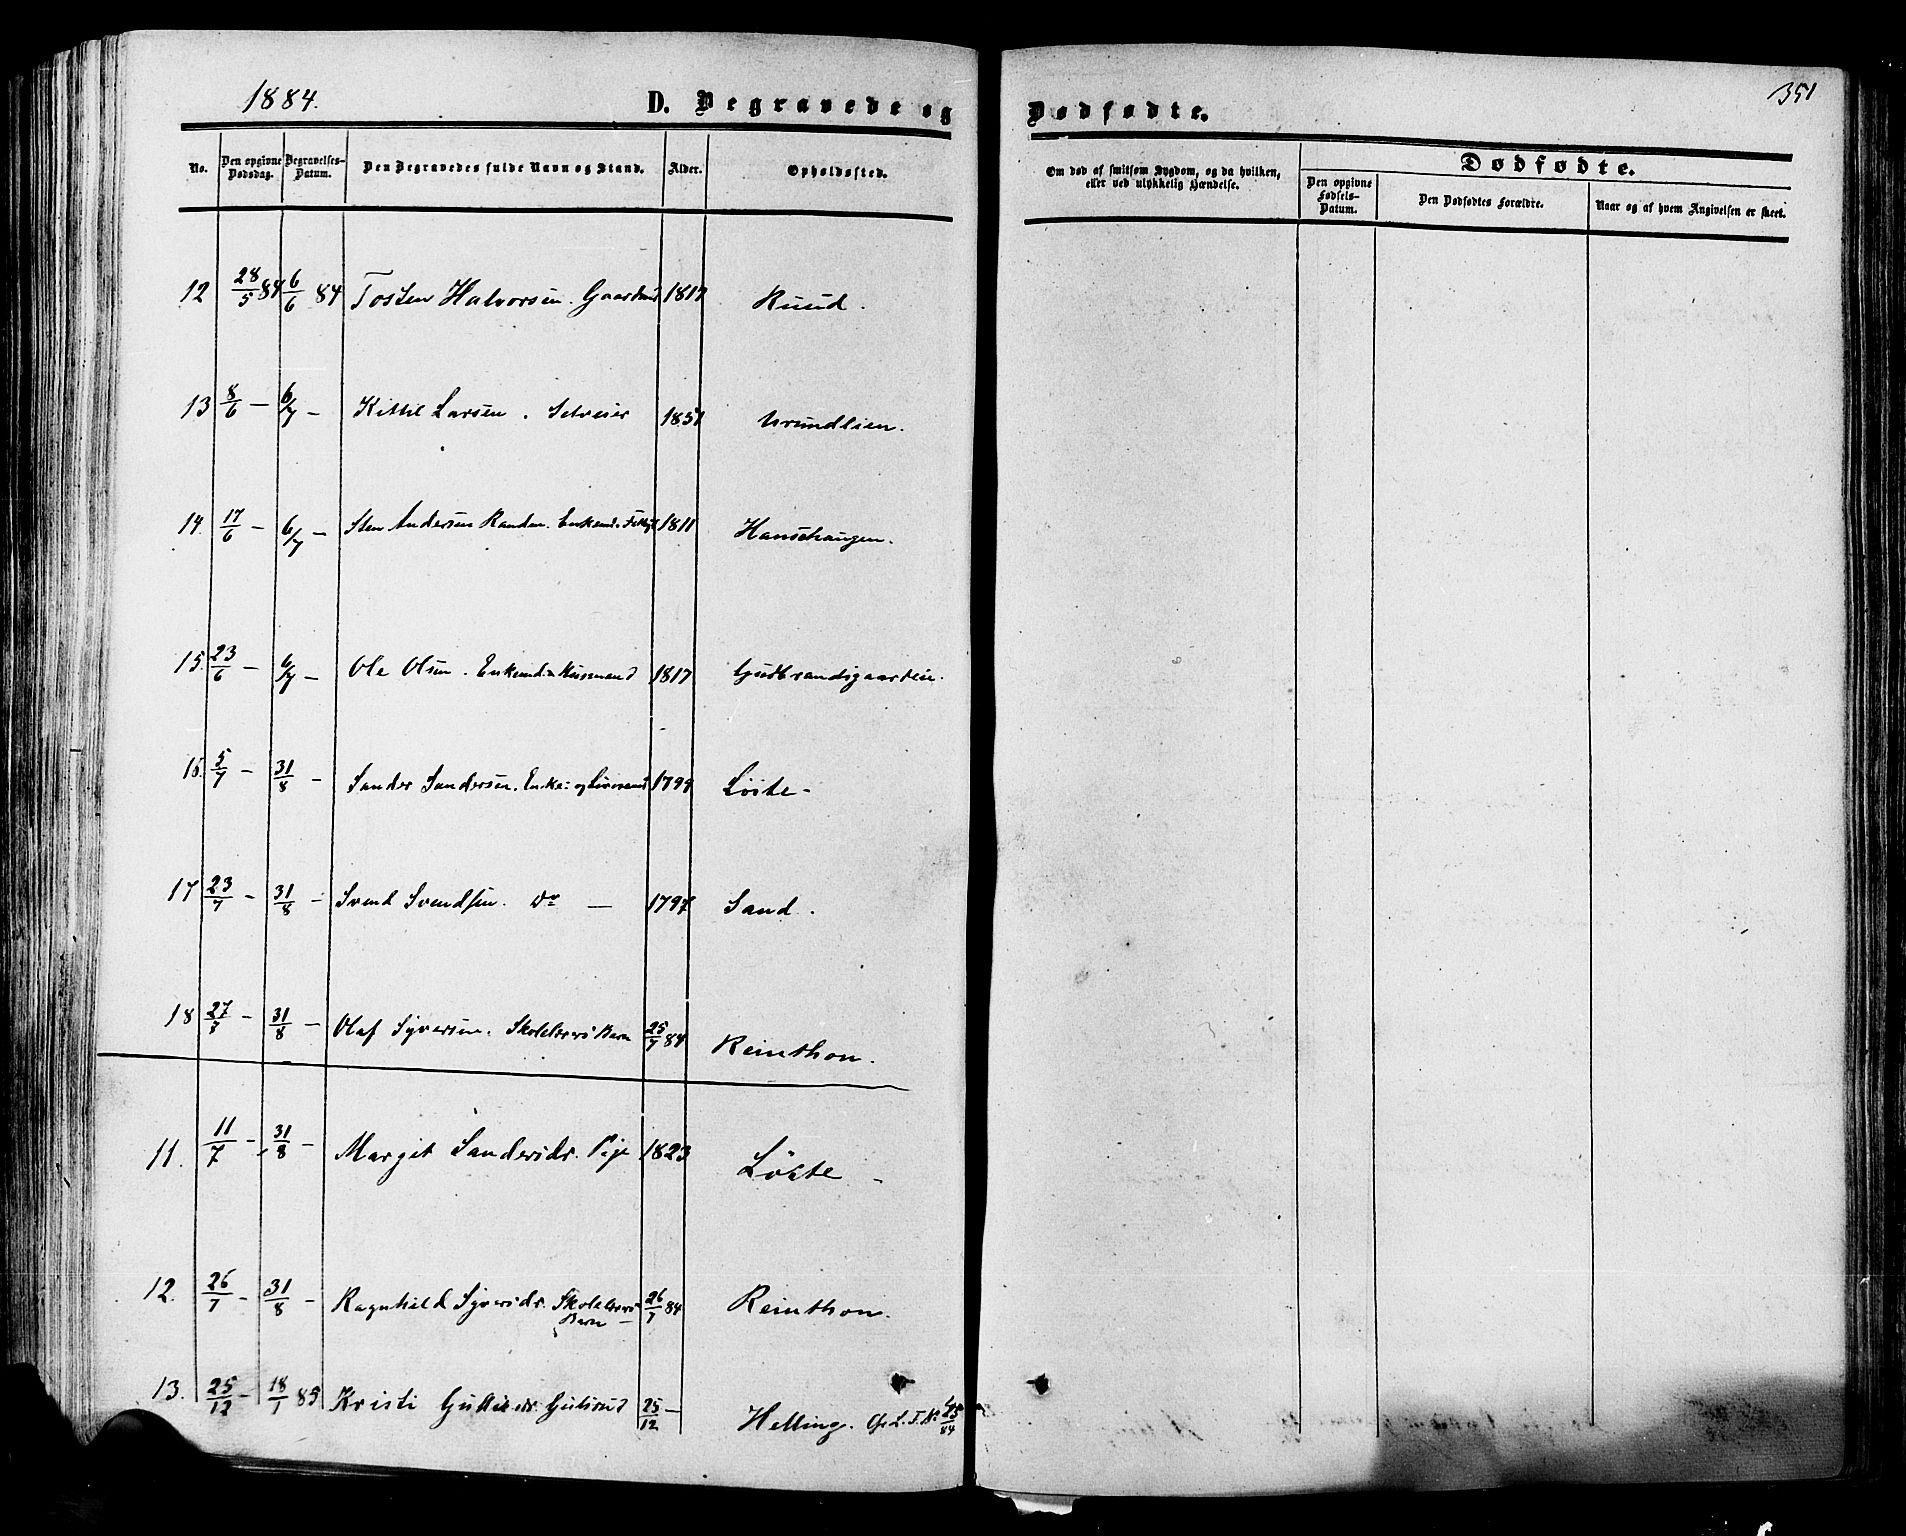 1884.
D. Begravede og Dødfødte.
351
No.
Den opgivne Dødsdag.
Begravelses-Datum.
Den Begravedes fulde Navn og Stand.
Alder.
Opholdssted.
Om død af smitsom Sygdom, og da hvilken,
eller ved ulykkelig Hændelse.
Dødfødte.
Den opgivne Fødsels-Datum.
Den Dødfødtes Forældre.
Naar og af hvem Angivelsen er skeet.
12 28/5 84 6/6 84 Tosten Halvorsen. Gaardmd 1817 Ruud.
13 8/6 — 6/7 — Kittil Larsen. Selveier 1851 Urundlien.
14. 17/6 — 6/7 — Sten Andersen Randen. Enkemd. 1811 Hanschaugen.
15. 23/6 — 6/7 — Ole Olsen. Enkemd & Husmand 1817 Gudbrandsgaarden.
16. 5/7 — 31/8 — Sander Sandersen. Enke- og 1799 Löste -
17 23/7 — 31/8 — Svend Svendsen. Do — 1797 Sand.
18 27/7 — 31/8 — Olaf Syversen. Skolelærers Barn 25/7 84 Reinthon.
11. 11/7 — 31/8 — Margit Sandersdr. Pige 1823 Löste -
12. 26/7 — 31/8 — Ragnhild Syversdr. Skolelærers Barn — 26/7 84 Reinthon.
13. 25/12 — 18/1 85 Kristi Gulliksdr. Gulsrud 25/12 — Helling. Cfr. L. T. No 45/84